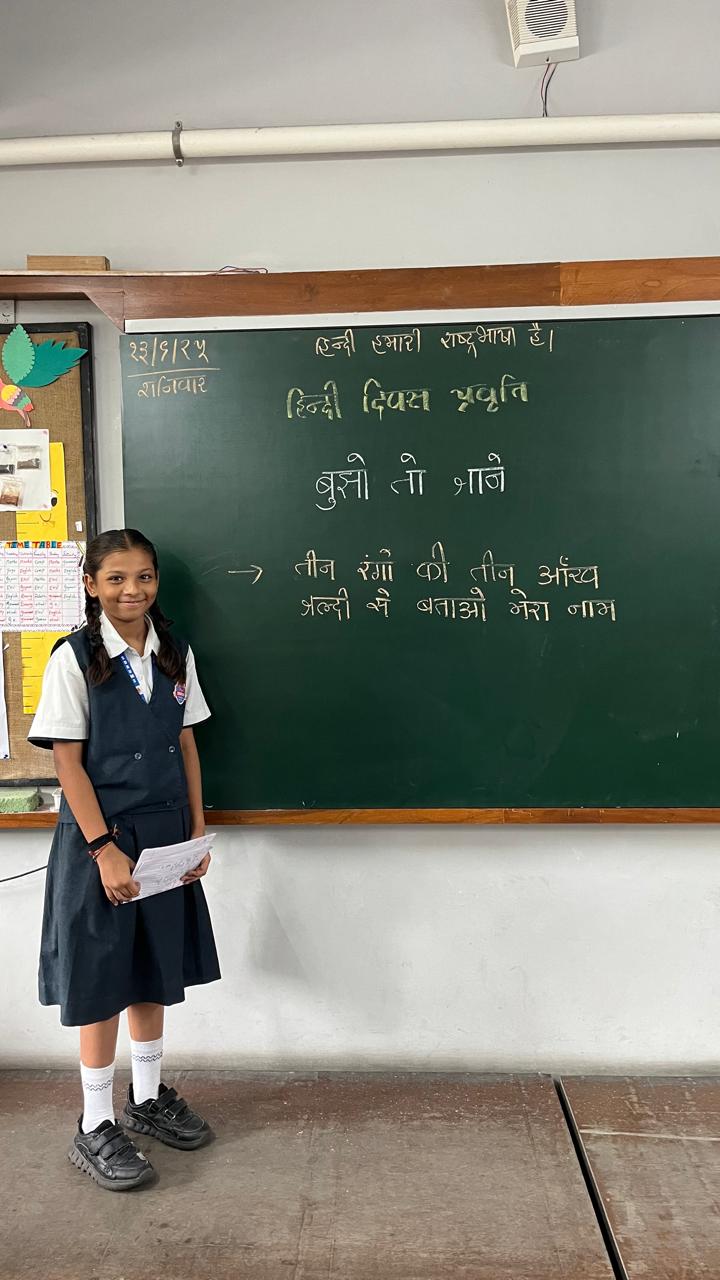 १३/९/२५
शनिवार
हिन्दी हमारी राष्ट्रभाषा है।
हिन्दी दिवस प्रवृति
बुझो तो जाने
→ तीन रंगो की तीन आँख
जल्दी से बताओ मेरा नाम
TIME TABLE